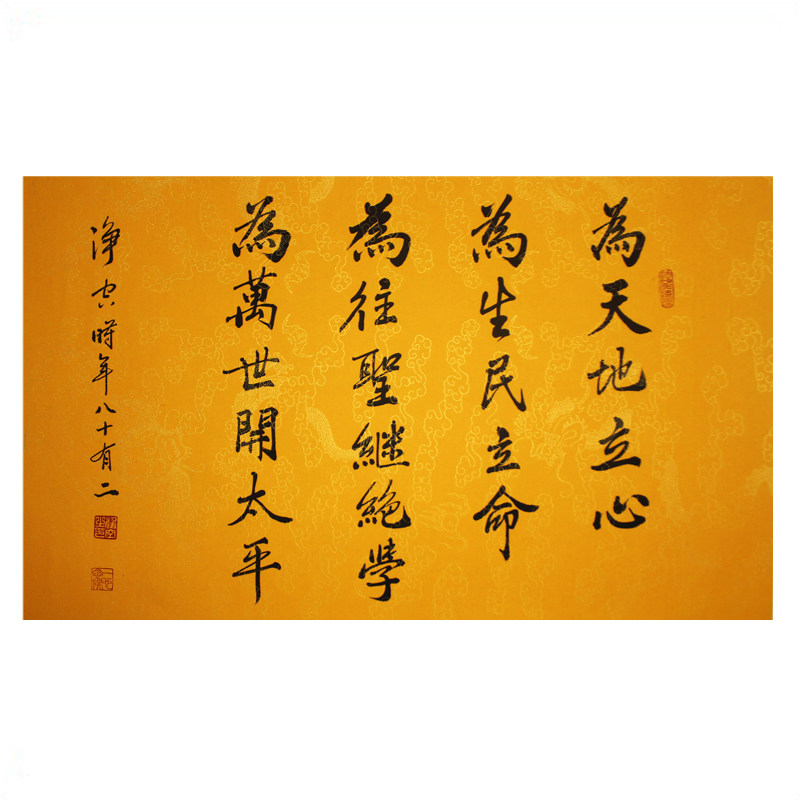 為天地立心
為生民立命
為往聖継絶學
為萬世開太平
淨空時年八十有二